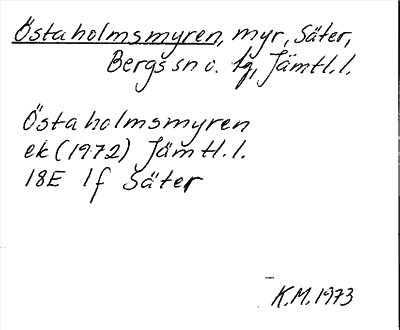 Östaholmsmyren, myr, Säter,
Bergs sn o. tg, Jämtl.l.
Östaholmsmyren
ek (1972) Jämtl.l.
18E 1f Säter
K.M. 1973